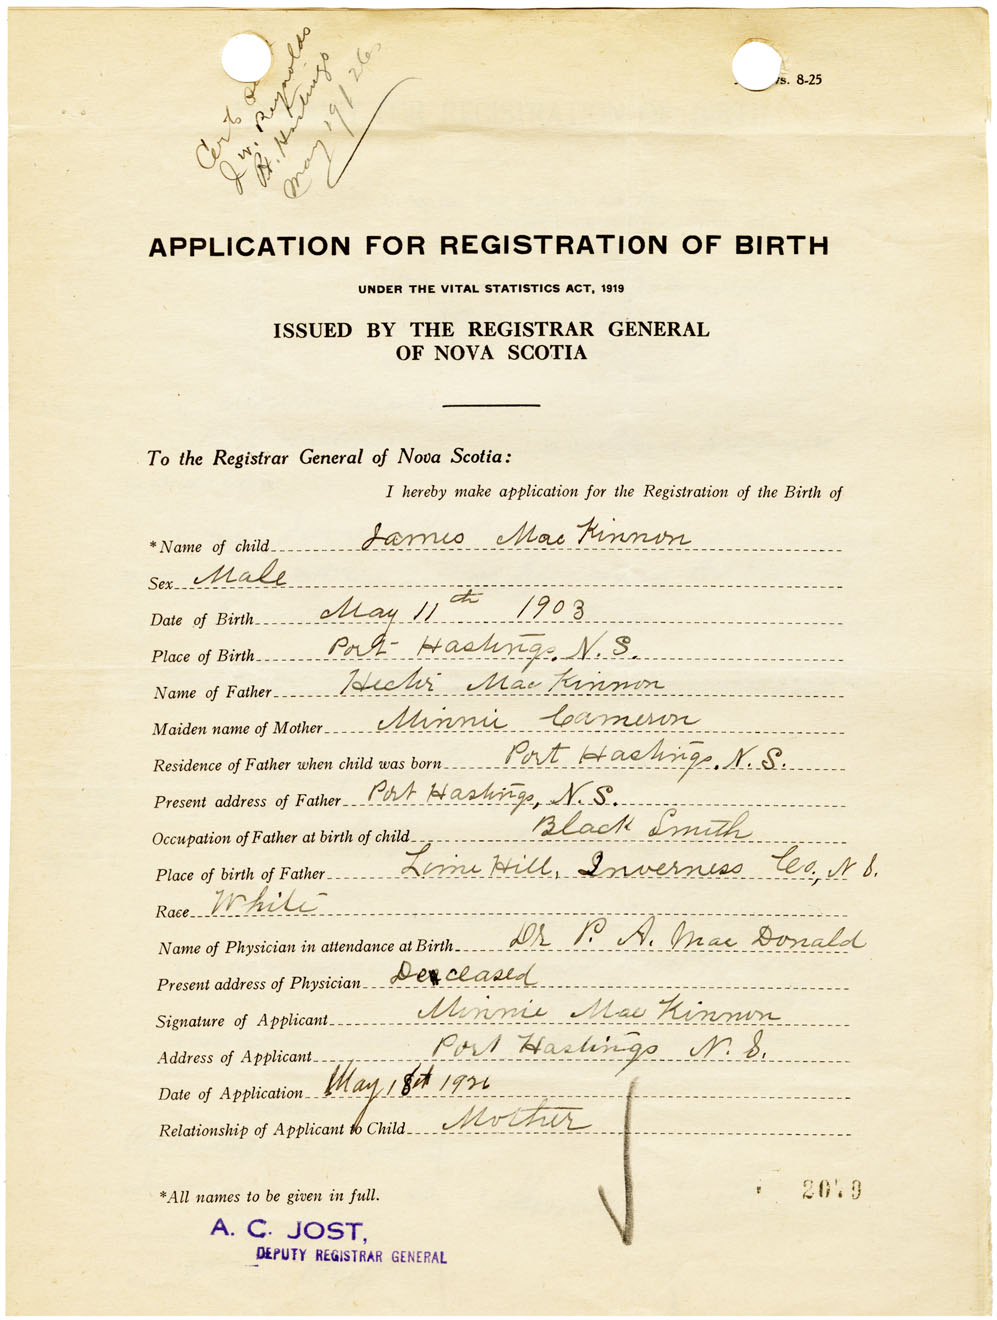 Cert
J. W. Reynolds
Pt. Hastings
May 19/26
vs. 8-25
APPLICATION FOR REGISTRATION OF BIRTH
UNDER THE VITAL STATISTICS ACT, 1919
ISSUED BY THE REGISTRAR GENERAL
OF NOVA SCOTIA
To the Registrar General of Nova Scotia:
I hereby make application for the Registration of the Birth of
*Name of child James Mac Kinnon
Sex Male
Date of Birth May 11th 1903
Place of Birth Port Hastings, N. S.
Name of Father Hector Mac Kinnon
Maiden name of Mother Minnie Cameron
Residence of Father when child was born Port Hastings, N. S.
Present address of Father Port Hastings, N. S.
Occupation of Father at birth of child Black Smith
Place of birth of Father Lime Hill, Inverness Co., N S.
Race White
Name of Physician in attendance at Birth Dr P. A. Mac Donald
Present address of Physician Deceased
Signature of Applicant Minnie Mac Kinnon
Address of Applicant Port Hastings N. S.
Date of Application May 18t 1926
Relationship of Applicant to Child Mother
*All names to be given in full.
2079
A. C. JOST,
DEPUTY REGISTRAR GENERAL